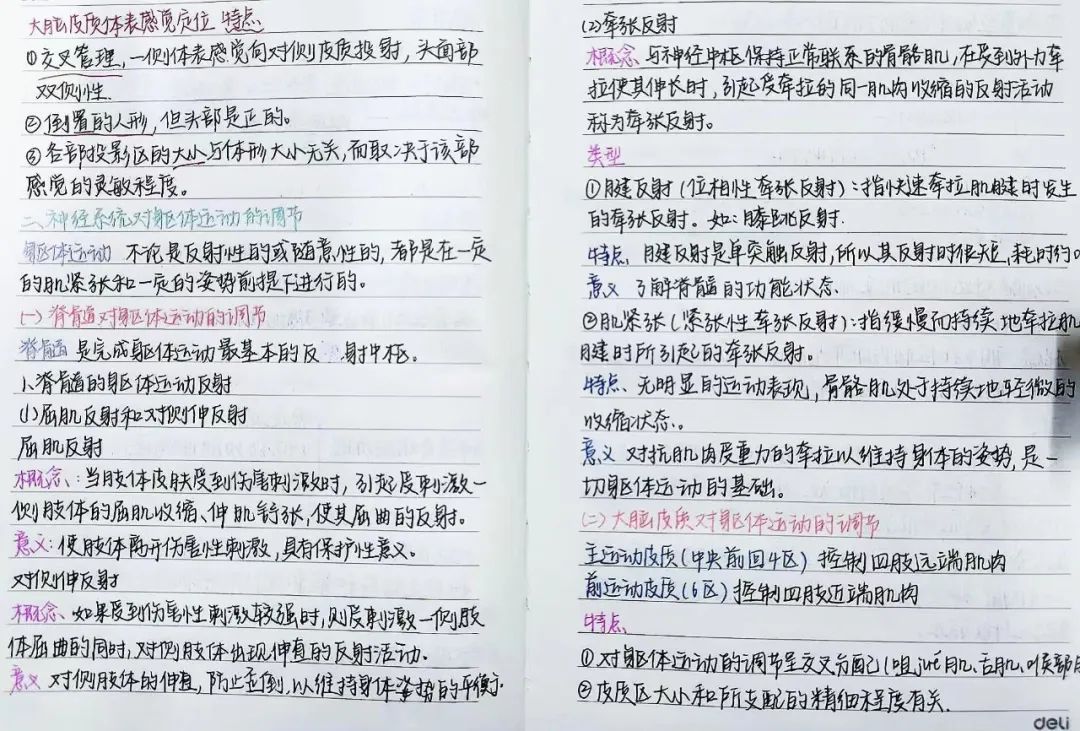 大脑皮质体表感觉定位 特点
①交叉管理,一侧体表感觉向对侧皮质投射,头面部
双侧性.
②倒置的人形,但头部是正的。
③各部投影区的大小与体形大小无关,而取决于该部
感觉的灵敏程度。
二、神经系统对躯体运动的调节
躯体运动 不论是反射性的或随意性的,都是在一定
的肌紧张和一定的姿势前提下进行的。
(一)脊髓对躯体运动的调节
脊髓 是完成躯体运动最基本的反 射中枢。
1、脊髓的躯体运动反射
(1)屈肌反射和对侧伸反射
屈肌反射
概念:当肢体皮肤受到伤害刺激时,引起受刺激一
侧肢体的屈肌收缩、伸肌舒张,使其屈曲的反射。
意义:使肢体离开伤害性刺激,具有保护性意义。
对侧伸反射
概念、如果受到伤害性刺激较强时,则受刺激一侧肢
体屈曲的同时,对侧肢体出现伸直的反射活动.
意义 对侧肢体的伸直,防止歪倒,以维持身体姿势的平衡
(2)牵张反射
概念、与神经中枢保持正常联系的骨骼肌,在受到外力牵
拉使其伸长时,引起受牵拉的同一肌肉收缩的反射活动
称为牵张反射。
类型
①腱反射(位相性牵张反射):指快速牵拉肌腱时发生
的牵张反射。如:膝跳反射.
特点、腱反射是单突触反射,所以其反射时很短,耗时约
意义 了解脊髓的功能状态.
②肌紧张(紧张性牵张反射):指缓慢而持续地牵拉肌
腱时所引起的牵张反射。
特点、无明显的运动表现,骨骼肌处于持续地轻微的
收缩状态.。
意义 对抗肌肉受重力的牵拉以维持身体的姿势,是一
切躯体运动的基础。
(二)大脑皮质对躯体运动的调节
主运动皮质(中央前回4区) 控制四肢远端肌肉
前运动皮质(6区)控制四肢近端肌肉
特点
①对躯体运动的调节呈交叉分配(咀jué肌、舌肌、喉部
②皮质区大小和所支配的精细程度有关.
deli